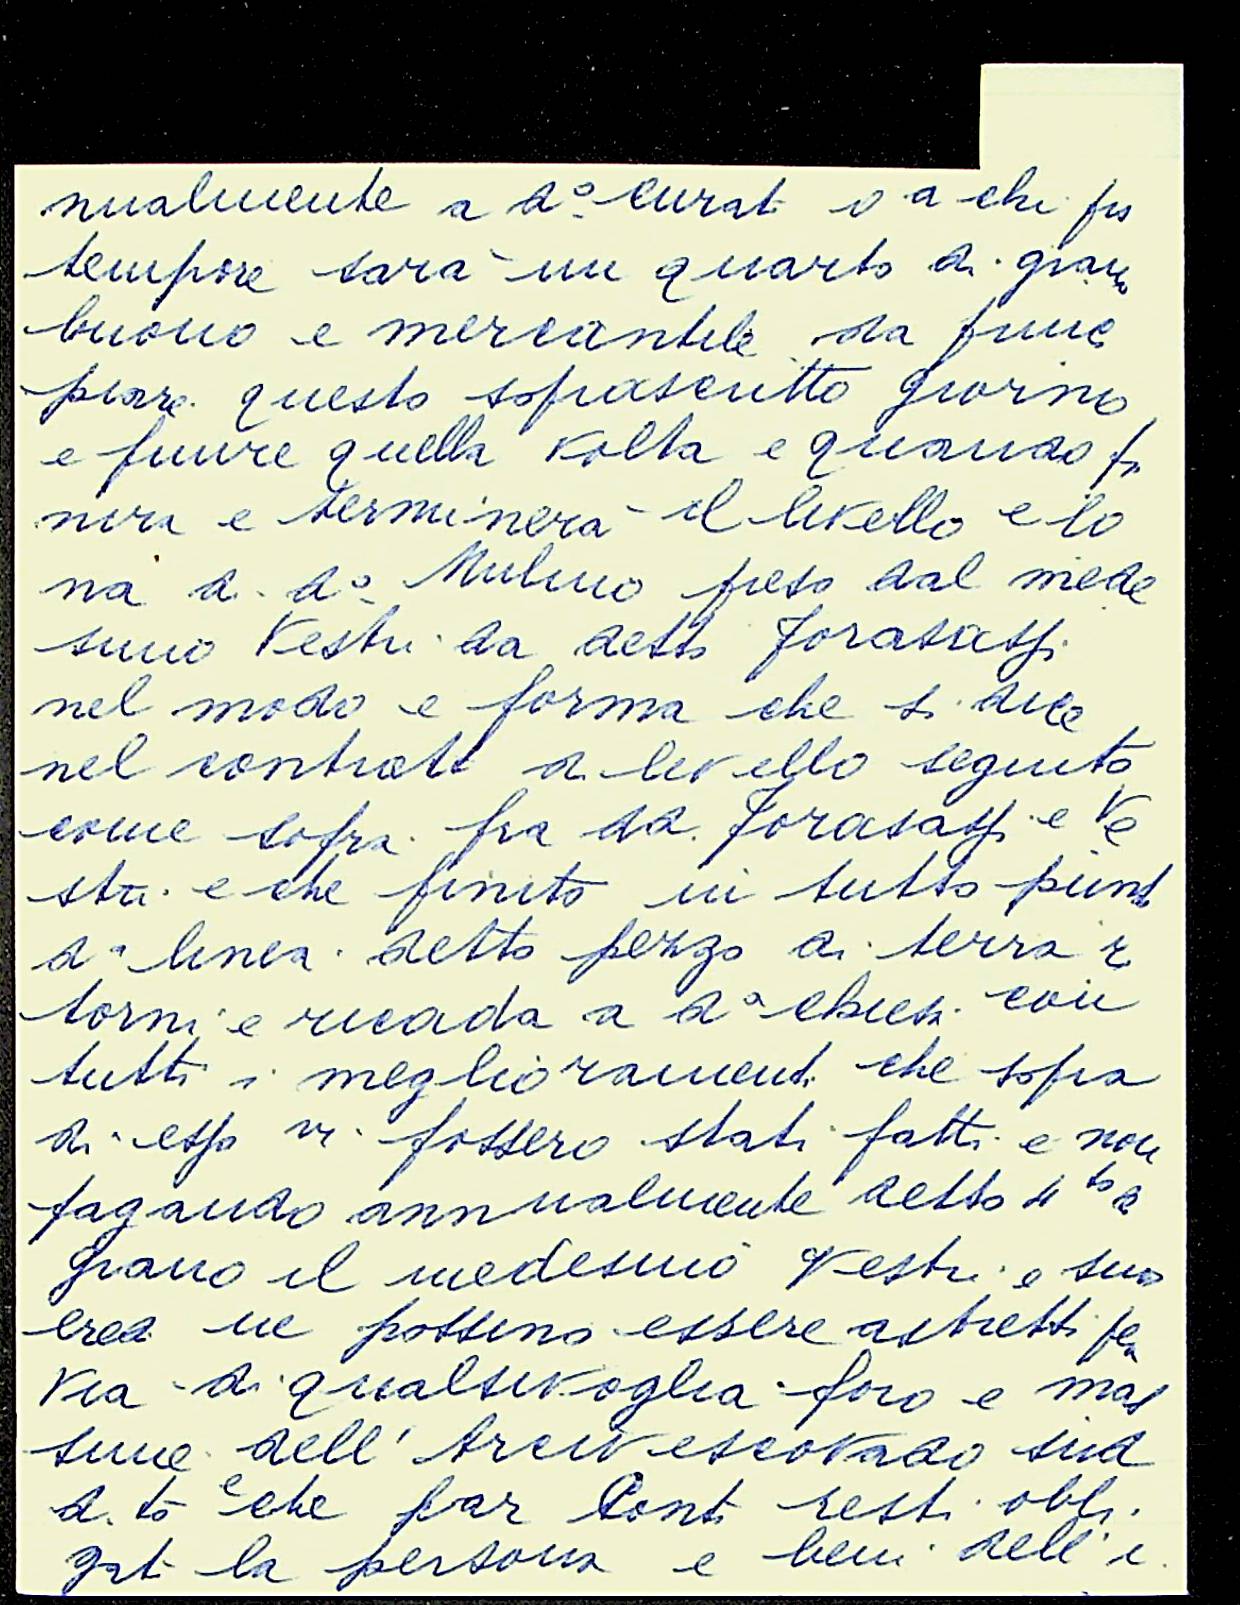 nualmente a d.º curat. o a chi p
tempore sarà un quarto di grano
buono e mercantile da princi
piare questo soprascritto giorno
e finire quella volta e quando fi
nirà e terminerà il livello e li
nea di d.º Mulino preso dal mede
simo Vestri da detti Forasassi
nel modo e forma che si dice
nel contratto di livello seguito
come sopra fra dd. Forasassi e Ve
stri e che finito in tutto punto
d.ª linea detto pezzo di terra ri
torni e ricada a d.ª chiesa con
tutti i meglioramenti che sopra
di esso vi fossero stati fatti e non
pagando annualmente detto 4to di
grano il medesimo Vestri e suoi
eredi ne possino essere astretti per
via di qualsivoglia foro e mas
sime dell'Arcivescovado sud
d.to e che par resti obbli
gat. la persona e beni dell'